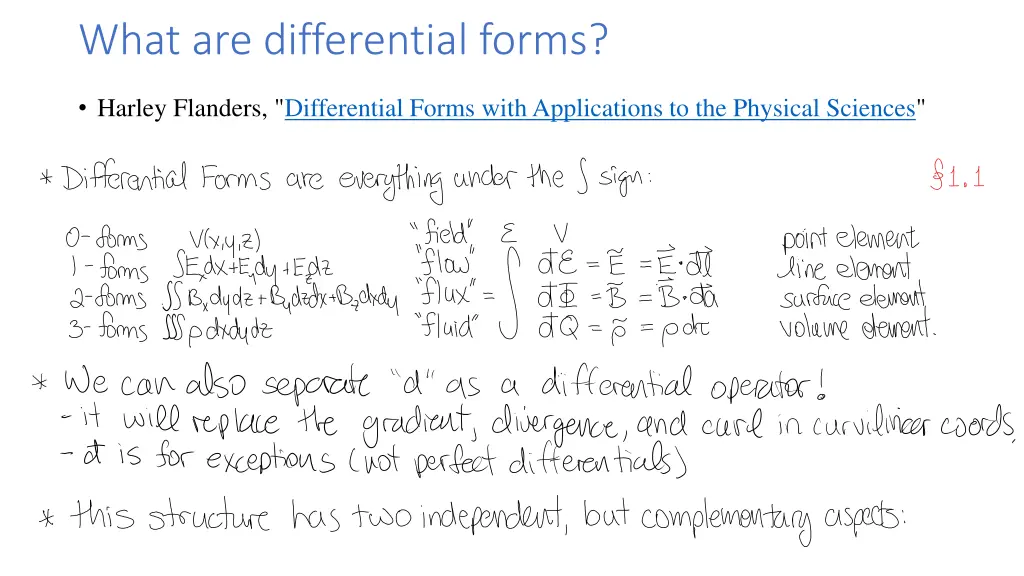 What are differential forms?
• Harley Flanders, "Differential Forms with Applications to the Physical Sciences"
* Differential Forms are everything under the ∫ sign: §1.1
0-forms V(x,y,z) "field" ℰ V point element
1-forms ∫E_x dx+E_y dy+E_z dz "flow" ∫ đℰ = Ẽ = E⃗·dl⃗ line element
2-forms ∫∫B_x dydz+B_y dzdx+B_z dxdy "flux" = ∫ đΦ = B̃ = B⃗·da⃗ surface element
3-forms ∫∫∫ρdxdydz "fluid" ∫ đQ = ρ̃ = ρdτ volume element.
* We can also separate "d" as a differential operator!
- it will replace the gradient, divergence, and curl in curvilinear coords,
- đ is for exceptions (not perfect differentials)
* this structure has two independent, but complementary aspects: